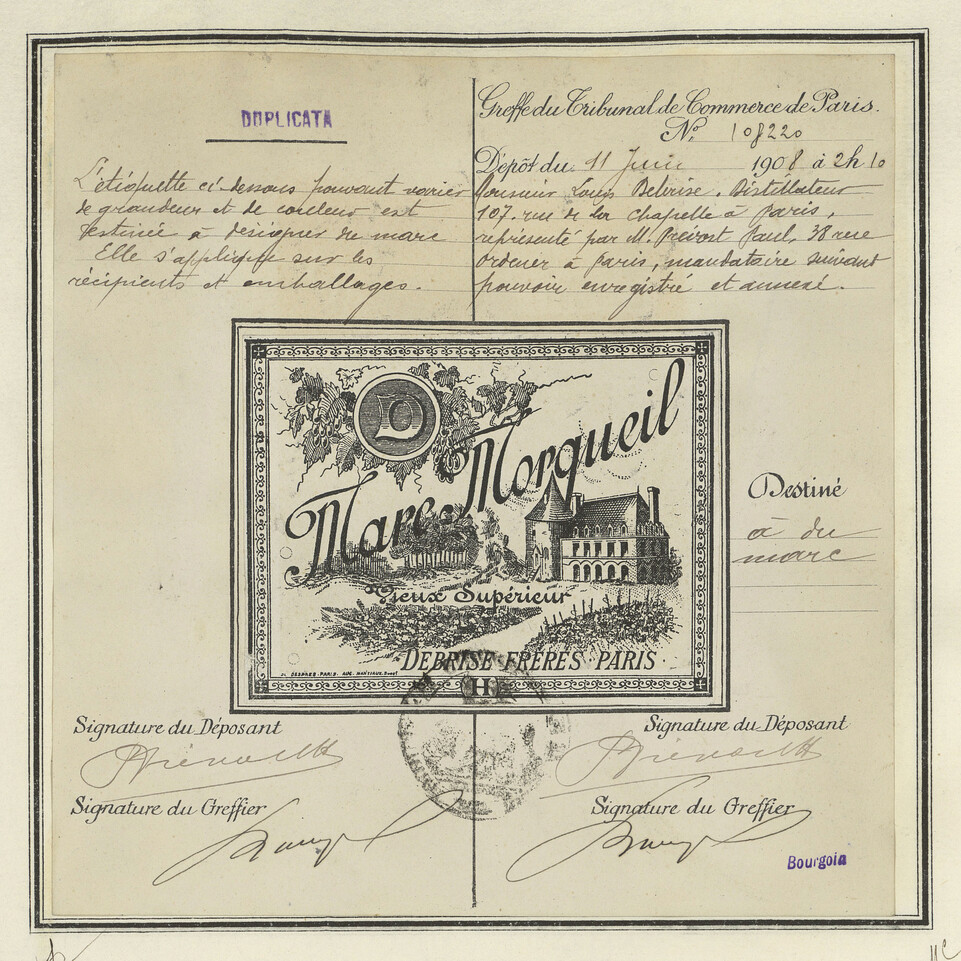 DUPLICATA
L'étiquette ci-dessous pouvant varier
de grandeur et de couleur est
destinée à désigner du marc
Elle s'applique sur les
récipients et emballages.
Greffe du Tribunal de Commerce de Paris.
N° 108220
Dépôt du 11 Juin 1908 à 2h 10
Monsieur Louis Debrise, Distillateur
107, rue de la chapelle à Paris,
représenté par M. Prévost Paul, 38 rue
ordener à Paris, mandataire suivant
pouvoir enregistré et annexé.
D
Marc Morgueil
Vieux Supérieur
DEBRISE FRÈRES PARIS
H
Destiné
à du
marc
Signature du Déposant
Signature du Déposant
Signature du Greffier
Signature du Greffier
Bourgoin